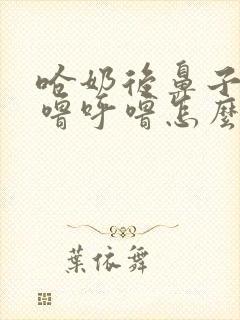 哈奶後鼻子
嚕呼嚕怎麼
葉依舞